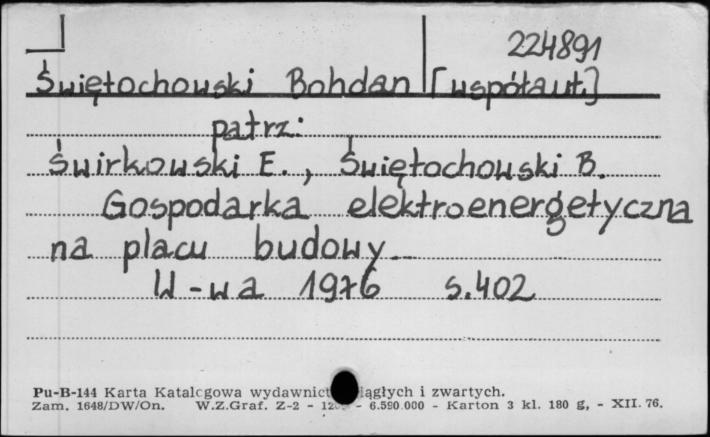 224891
Świętochowski Bohdan [współaut.]
patrz:
Świrkowski E., Świętochowski B.
Gospodarka elektroenergetyczna
na placu budowy
W-wa 1976 s.402
Pu-B-144 Karta Katalogowa wydawnict iągłych i zwartych.
Zam. 1648/DW/On. W.Z.Graf. Z-2 - - 6.590.000 - Karton 3 kl. 180 g, - XII. 76.